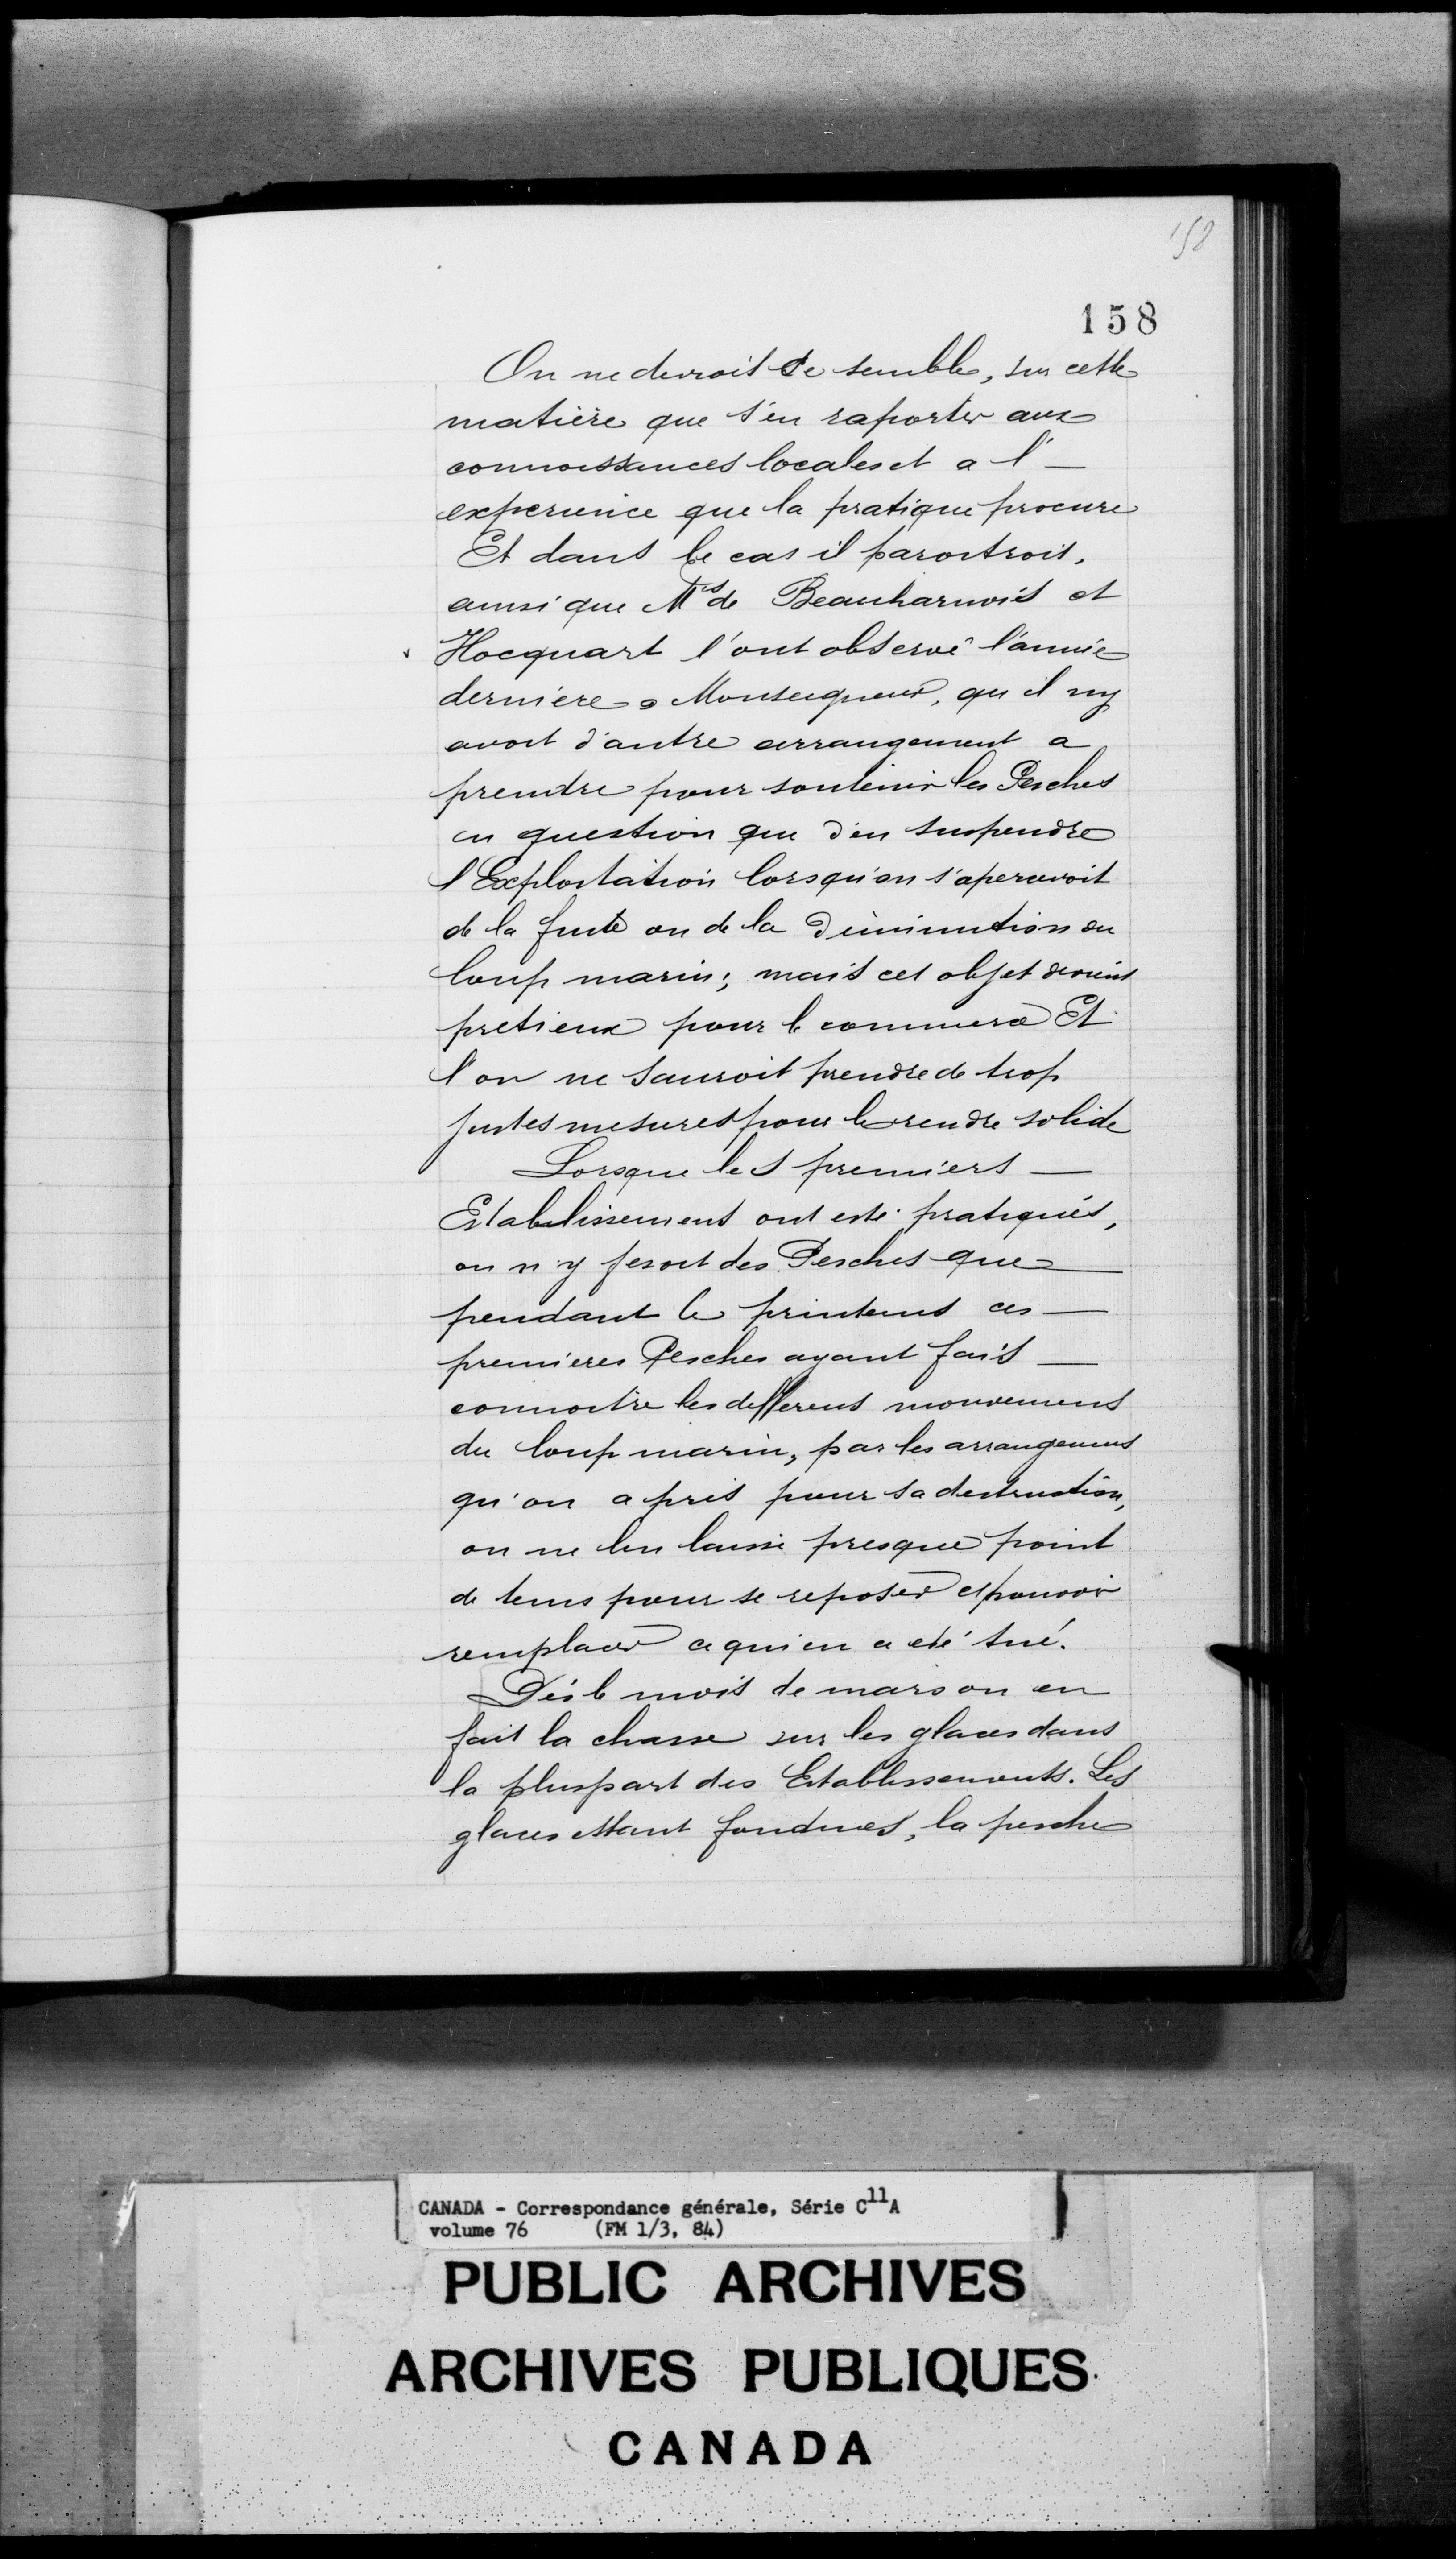 158
158
On ne devroit ce semble, sur cette
matière que s'en raporter aux
connoissances locales et a l'
experience que la pratique procure
Et dans le cas il paroitroit,
ainsi que Mrs de Beauharnois et
Hocquart l'ont observé l'année
derniere a Monseigneur, qu il ny
avoit d'autre arrangement a
prendre pour soutenir les Pesches
en question que d'en suspendre
l'Exploitation lorsqu'on s'apercevoit
de la fuite ou de la diminution du
loup marin; mais cet objet devient
pretieux pour le commerce Et
l'on ne sauroit prendre de trop
justes mesures pour le rendre solide
Lorsque les premiers
Establissement ont esté pratiqués,
on n'y fesoit des Pesches que
pendant le printems ces
premieres Pesches ayant fais
connoitre les differens mouvemens
du loup marin, par les arrangemens
qu'on a pris pour sa destruction,
on ne lui laisse presque point
de tems pour se reposer et pouvoir
remplacer ce qui en a eté tué.
Dés le mois de mars on en
fait la chasse sur les glaces dans
la pluspart des Establissements. Les
glaces estant fondues, la pesche
CANADA - Correspondance générale, Série C11A
volume 76 (FM 1/3, 84)
PUBLIC ARCHIVES
ARCHIVES PUBLIQUES
CANADA